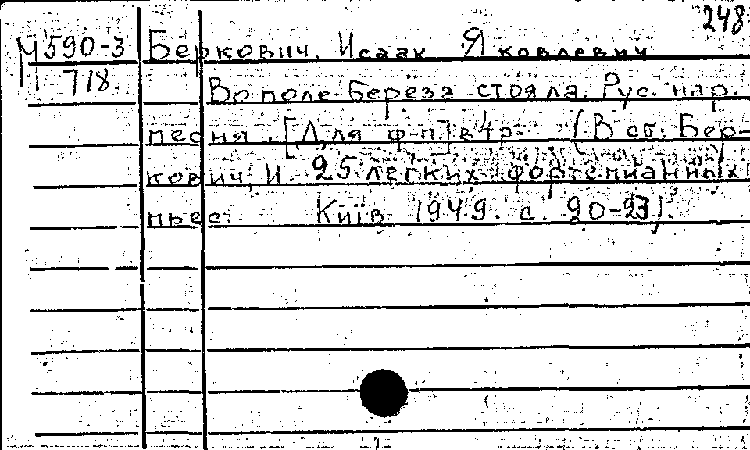 248
М590-3 Беркович, Исаак Яковлевич
718 Во поле береза стояла. Рус. нар.
песня. [Для ф-п] в 4 р. (В сб: Бер-
кович, И. 25 легких фортепианных
пьес. Київ 1949. с. 20-23).